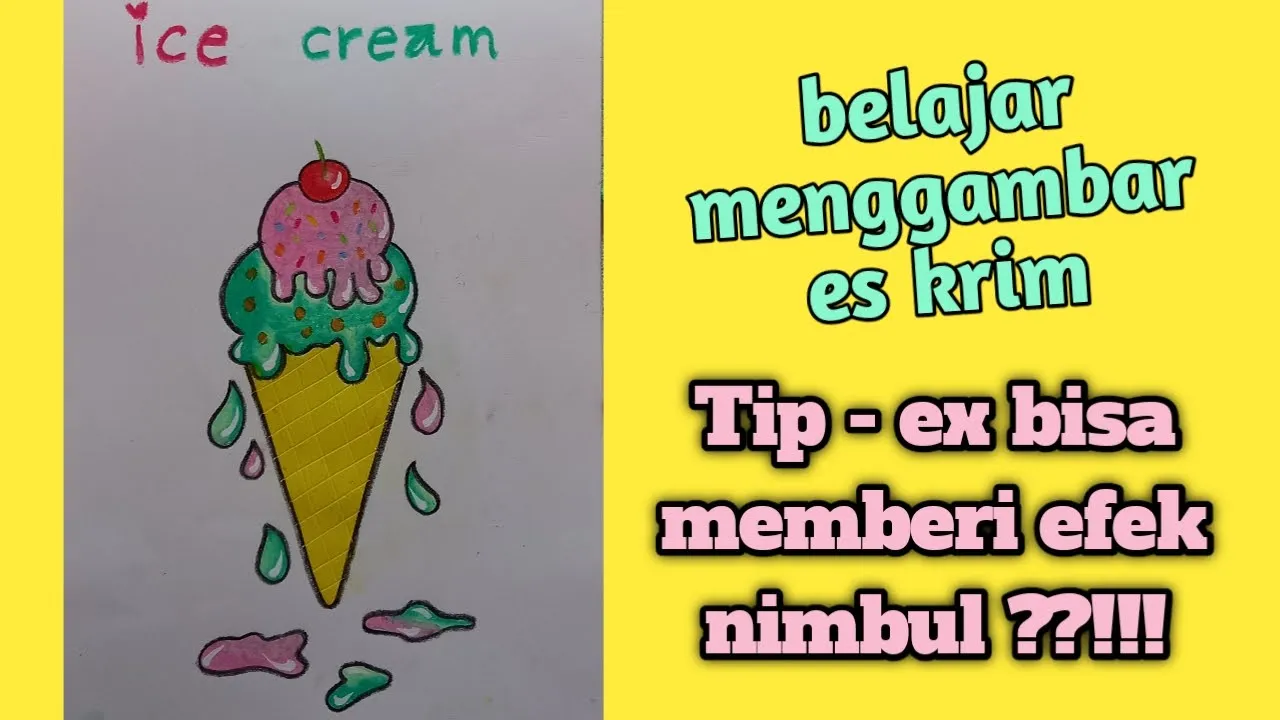 ice cream
belajar
menggambar
es krim
Tip - ex bisa
memberi efek
nimbul ??!!!